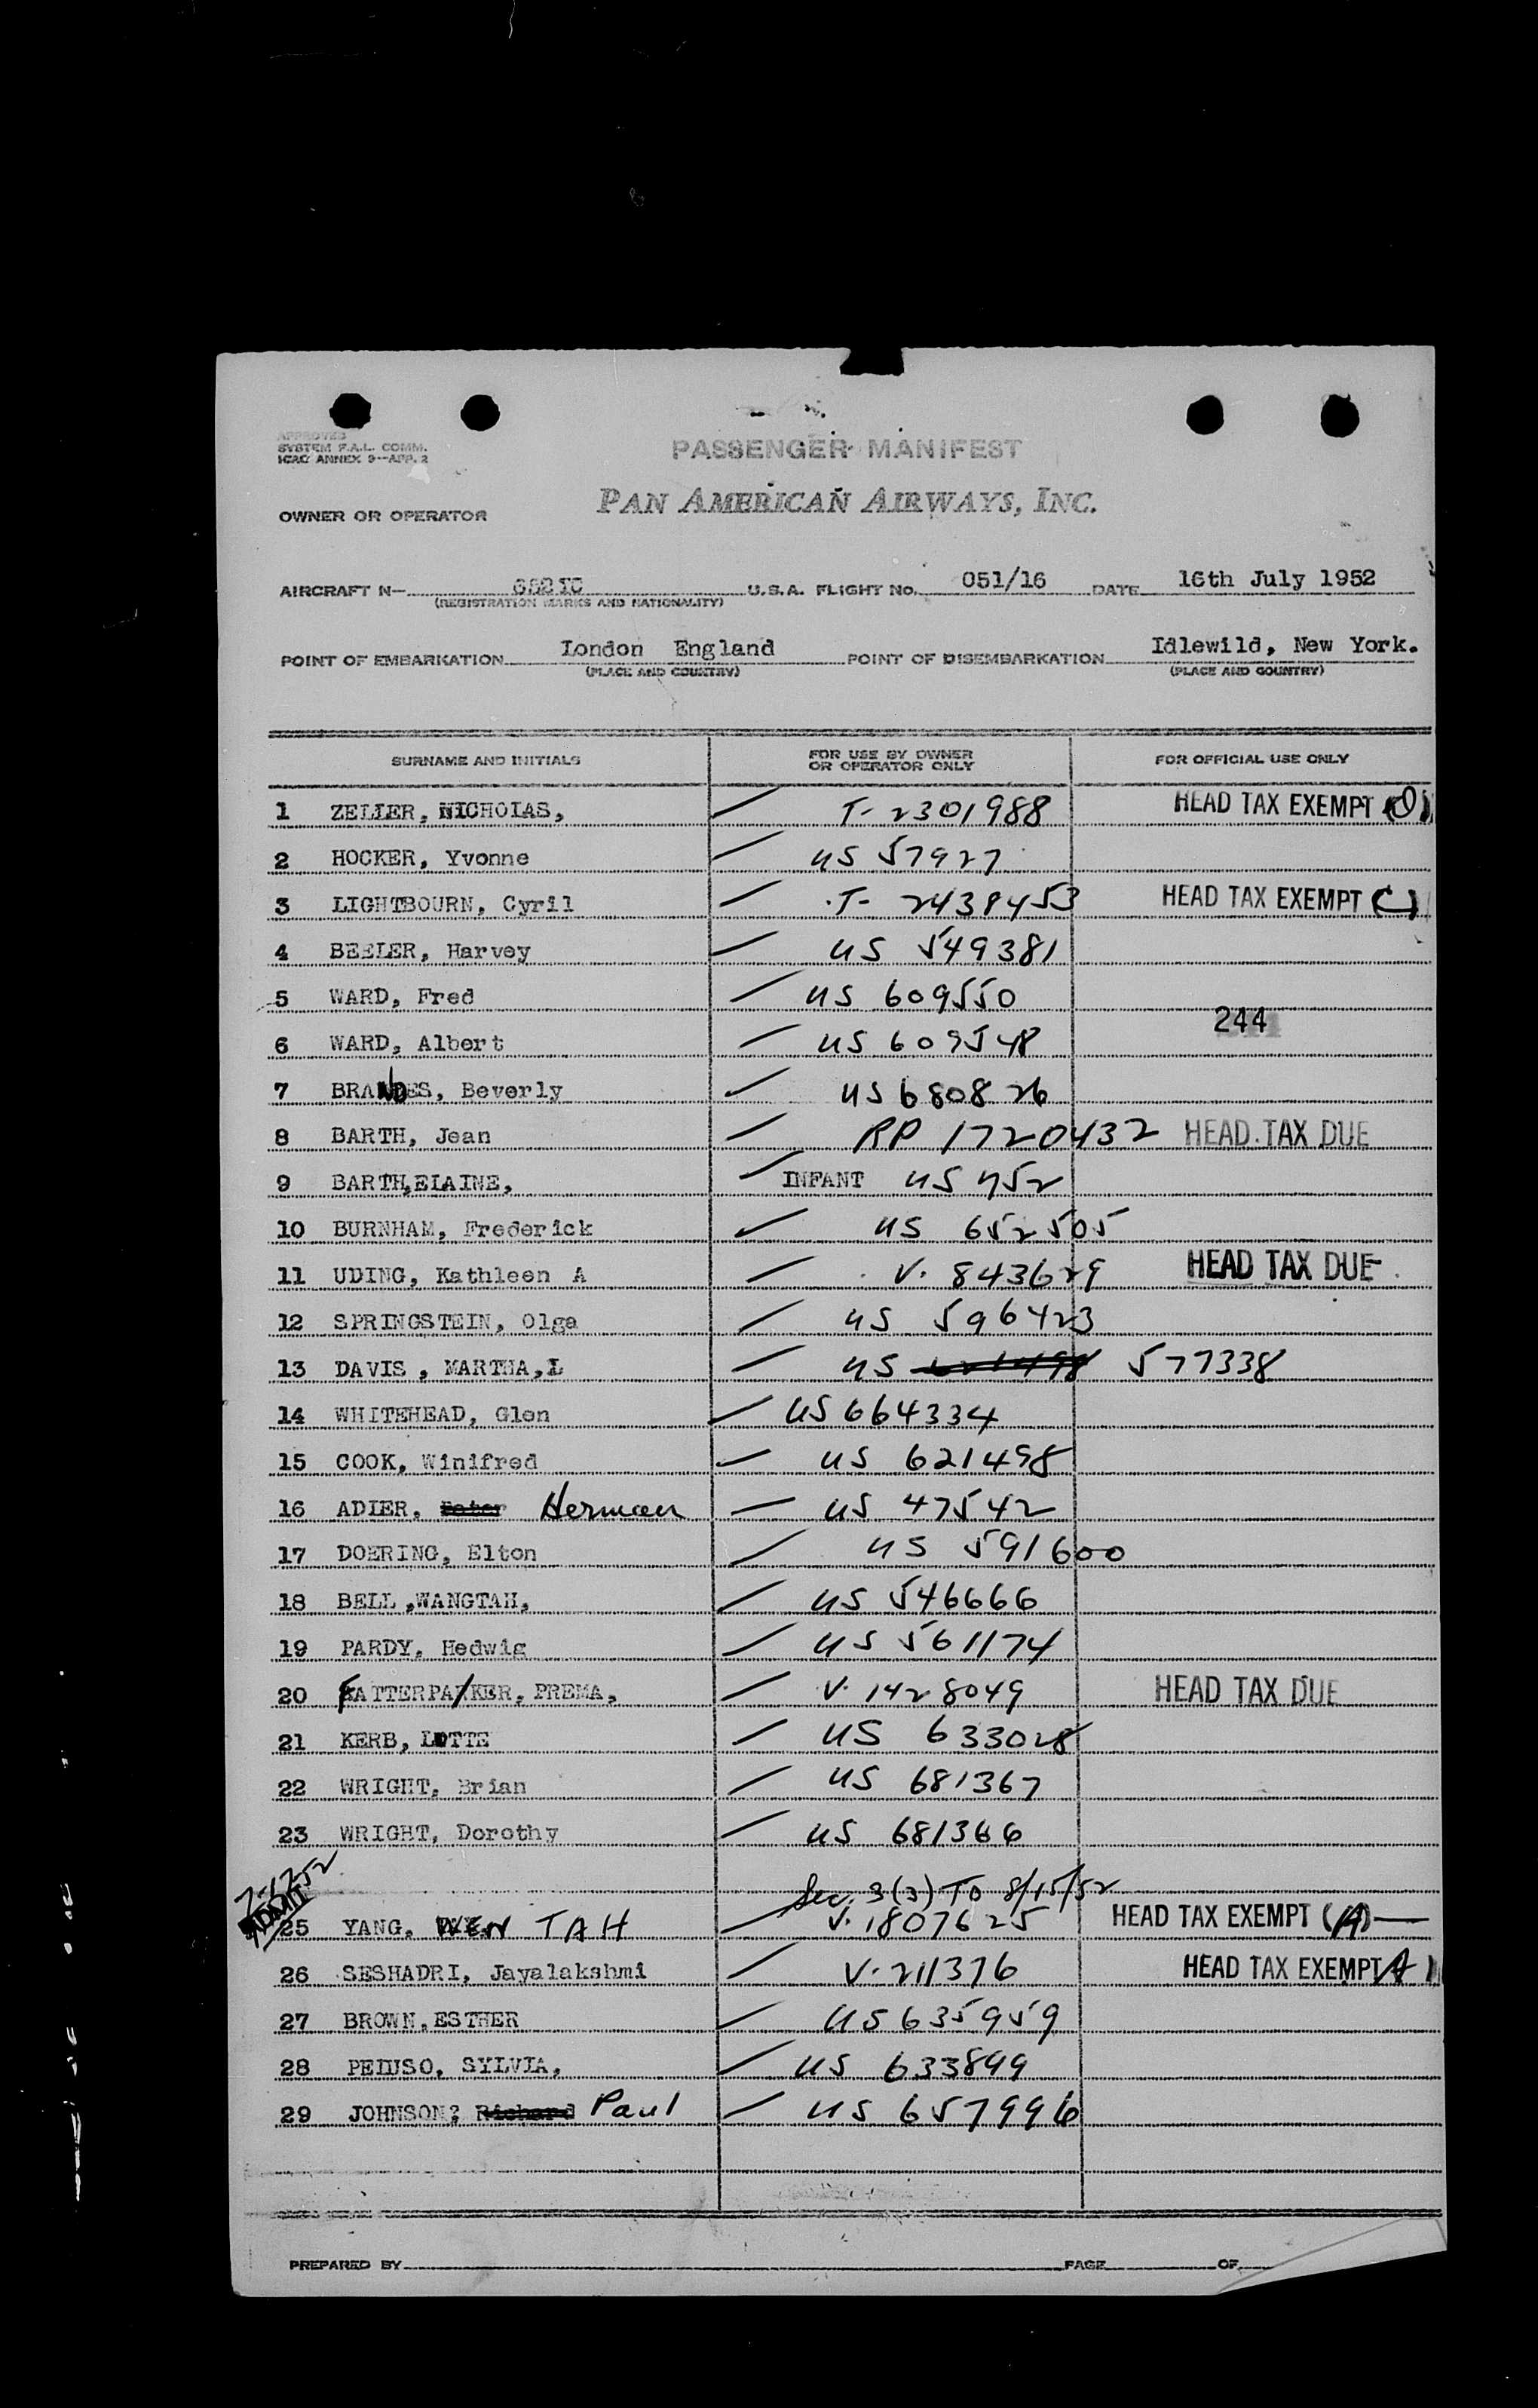 APPROVED
SYSTEM F.A.L. COMM.
ICAO ANNEX 9--APP. 2
PASSENGER MANIFEST
OWNER OR OPERATOR PAN AMERICAN AIRWAYS, INC.
AIRCRAFT N- U.S.A. FLIGHT NO. 051/16 DATE 16th July 1952
(REGISTRATION MARKS AND NATIONALITY)
POINT OF EMBARKATION London England POINT OF DISEMBARKATION Idlewild, New York.
(PLACE AND COUNTRY) (PLACE AND COUNTRY)
SURNAME AND INITIALS FOR USE BY OWNER OR OPERATOR ONLY FOR OFFICIAL USE ONLY
1 ZELLER, NICHOLAS, T- 2301988 HEAD TAX EXEMPT (O)
2 HOCKER, Yvonne US 57927
3 LIGHTBOURN, Cyril T- 2439453 HEAD TAX EXEMPT (C)
4 BEELER, Harvey US 549381
5 WARD, Fred US 609550
244
6 WARD, Albert US 609548
7 BRANDES, Beverly US 680826
8 BARTH, Jean RP 1720432 HEAD TAX DUE
9 BARTH,ELAINE, INFANT US 752
10 BURNHAM, Frederick US 652505
11 UDING, Kathleen A V. 843629 HEAD TAX DUE
12 SPRINGSTEIN, Olga US 596423
13 DAVIS , MARTHA,L US 621498 577338
14 WHITEHEAD, Glen US 664334
15 COOK, Winifred US 621498
16 ADLER, Peter Herman US 47542
17 DOERING, Elton US 591600
18 BELL ,WANGTAH, US 546666
19 PARDY, Hedwig US 561174
20 FATTERPAKER, PREMA, V. 1428049 HEAD TAX DUE
21 KERB, LOTTE US 633028
22 WRIGHT, Brian US 681367
23 WRIGHT, Dorothy US 681366
7-17-52 Sec. 3(3) TO 8/15/52
ADMIT
25 YANG, WEN TAH V. 1807625 HEAD TAX EXEMPT (A)
26 SESHADRI, Jayalakshmi V. 211376 HEAD TAX EXEMPT A)
27 BROWN,ESTHER US 635959
28 PELUSO, SYLVIA, US 633899
29 JOHNSON, Richard Paul US 657996
PREPARED BY PAGE OF